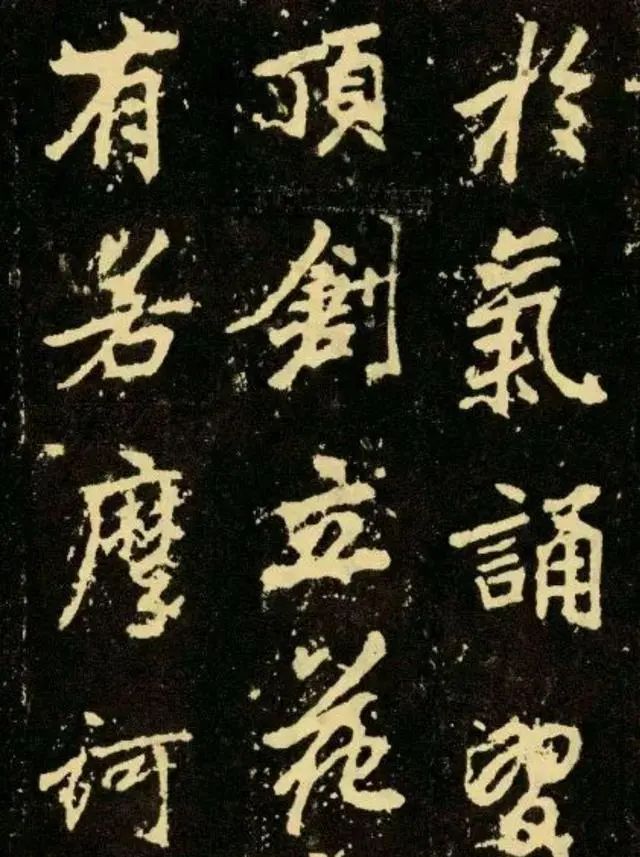 於氣誦習
頂創立花
有若摩訶